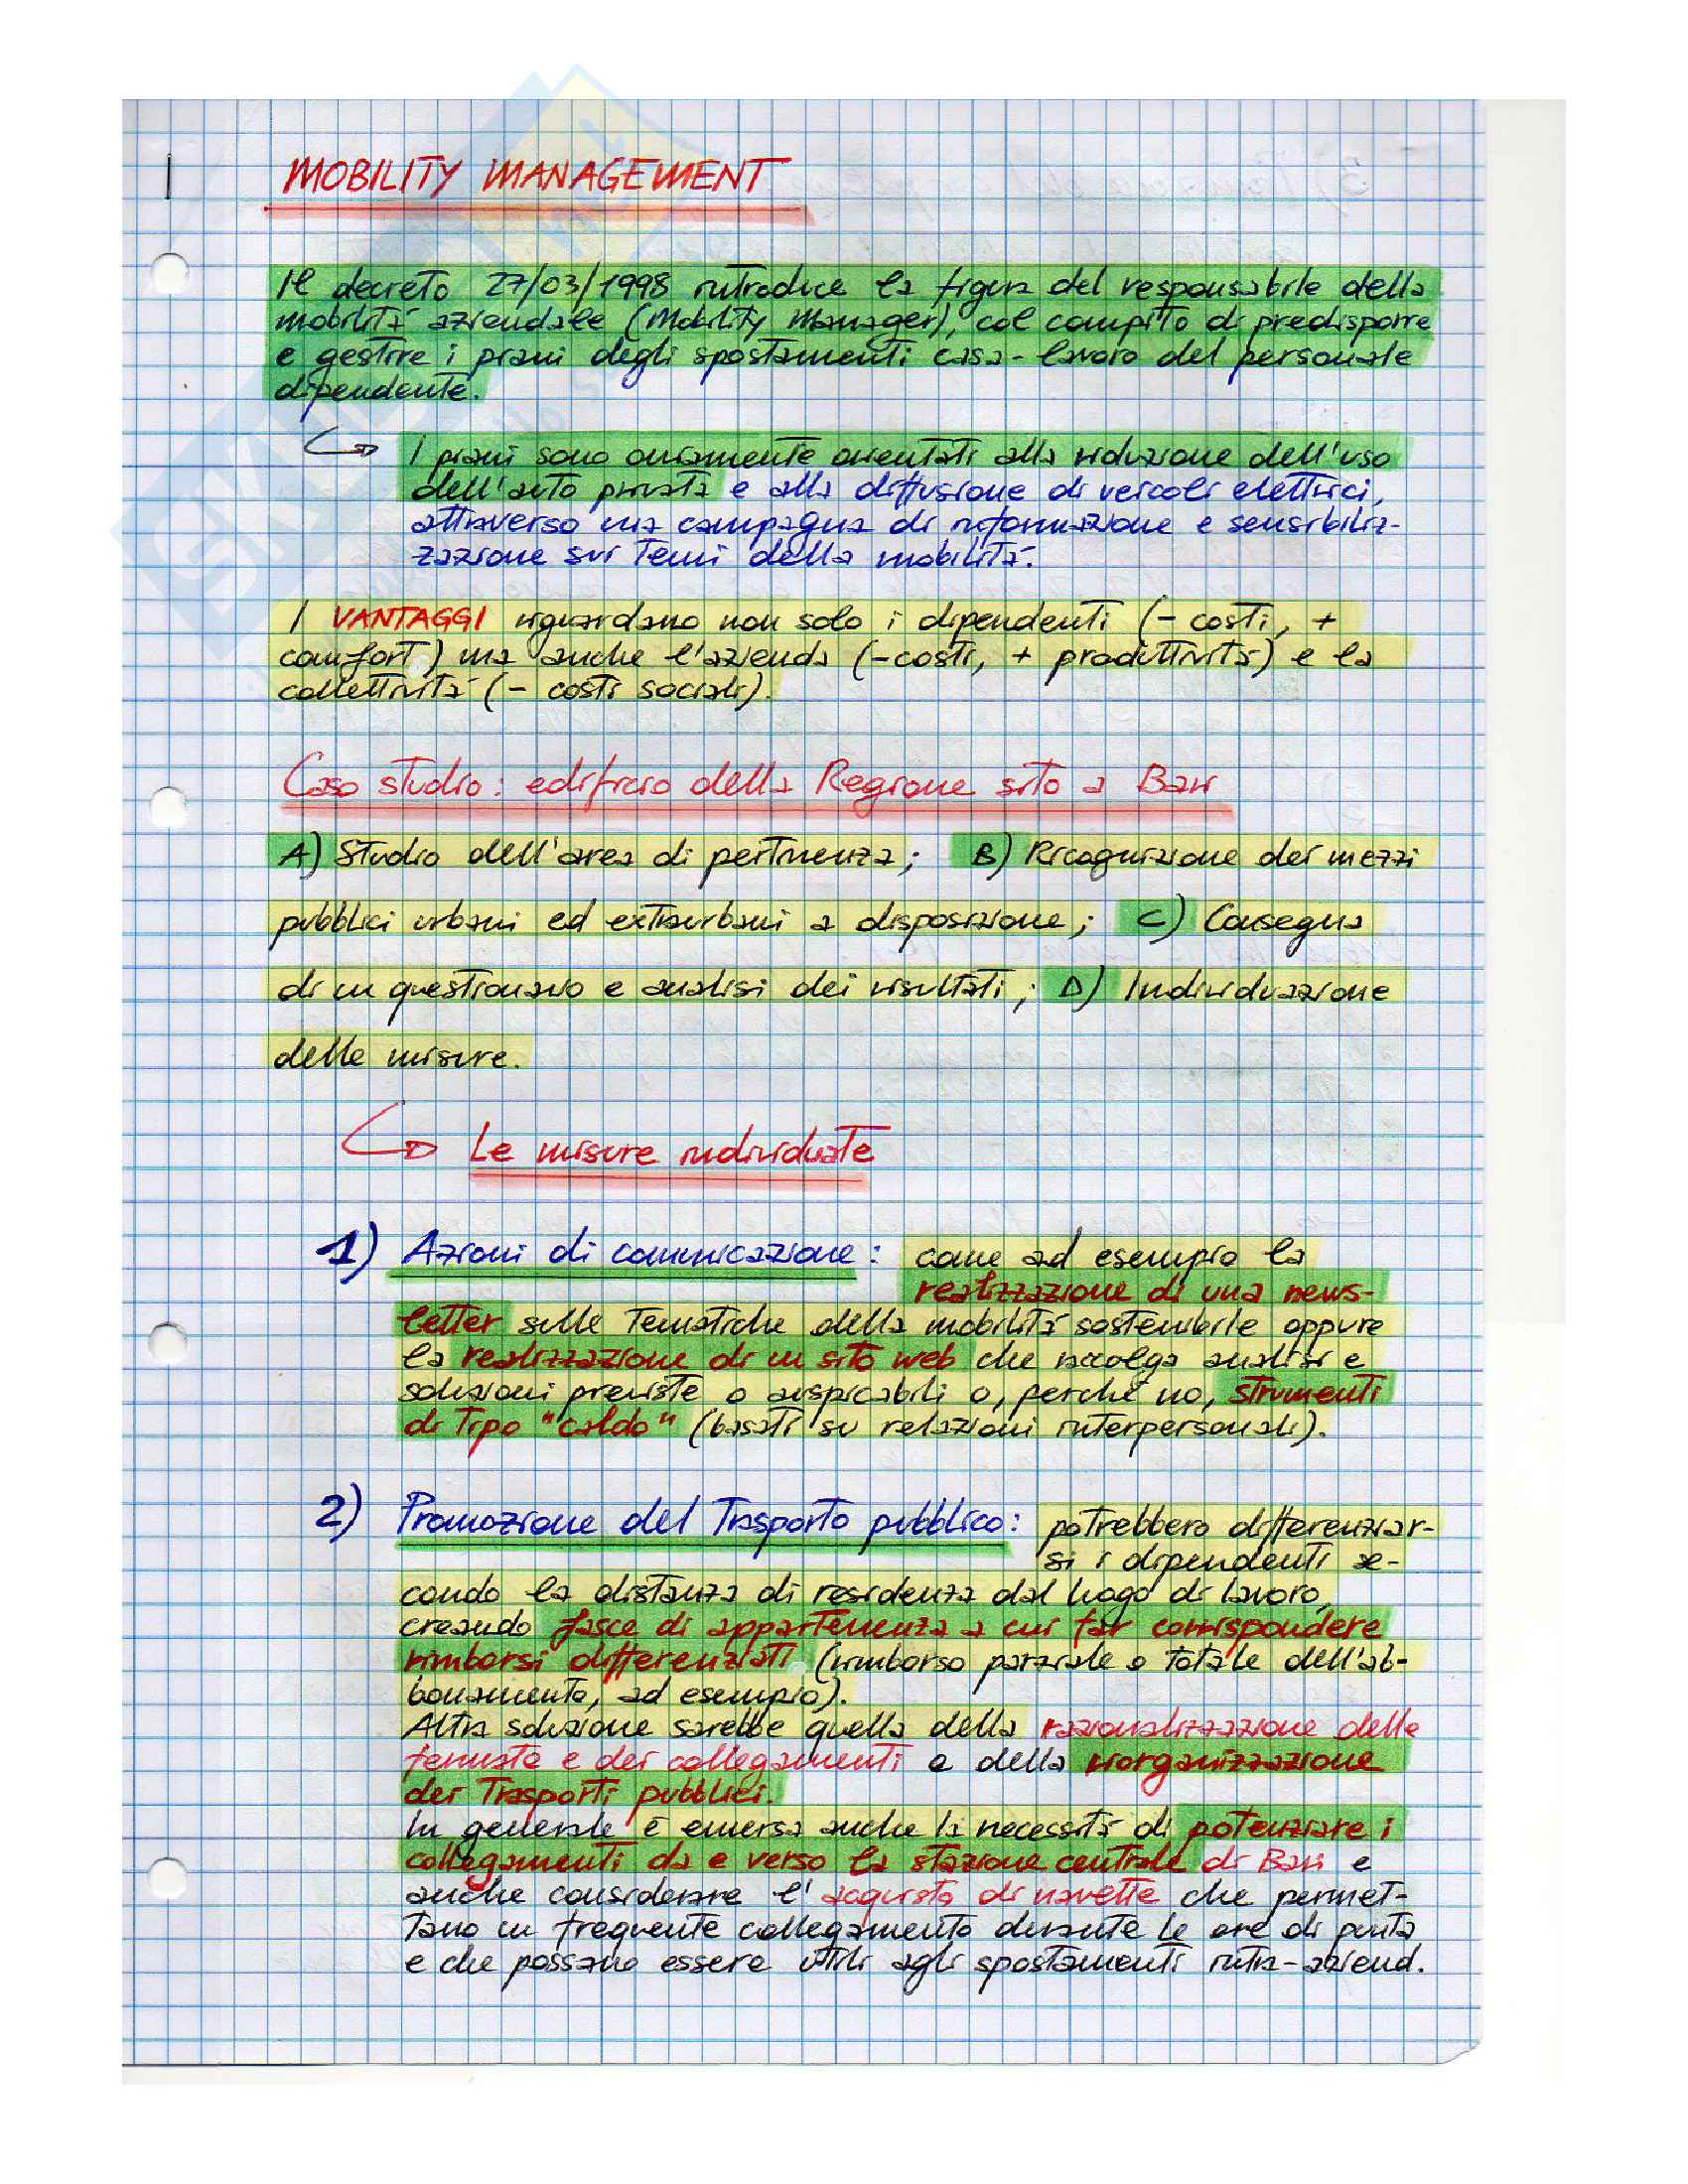 MOBILITY MANAGEMENT
Il decreto 27/03/1998 introduce la figura del responsabile della
mobilità aziendale (Mobility Manager), col compito di predisporre
e gestire i piani degli spostamenti casa-lavoro del personale
dipendente.
I piani sono ovviamente orientati alla riduzione dell'uso
dell'auto privata e alla diffusione di veicoli elettrici,
attraverso una campagna di informazione e sensibiliz-
zazione sui temi della mobilità.
I VANTAGGI riguardano non solo i dipendenti (- costi, +
comfort) ma anche l'azienda (-costi, + produttività) e la
collettività (- costi sociali).
Caso studio: edificio della Regione sito a Bari
A) Studio dell'area di pertinenza; B) Ricognizione dei mezzi
pubblici urbani ed extraurbani a disposizione; C) Consegna
di un questionario e analisi dei risultati; D) Individuazione
delle misure.
Le misure individuate
1) Azioni di comunicazione: come ad esempio la
realizzazione di una news-
letter sulle tematiche della mobilità sostenibile oppure
la realizzazione di un sito web che raccolga analisi e
soluzioni previste o auspicabili o, perché no, strumenti
di tipo "caldo" (basati su relazioni interpersonali).
2) Promozione del trasporto pubblico: potrebbero differenziar-
si i dipendenti se-
condo la distanza di residenza dal luogo di lavoro,
creando fasce di appartenenza a cui far corrispondere
rimborsi differenziati (rimborso parziale o totale dell'ab-
bonamento, ad esempio).
Altra soluzione sarebbe quella della razionalizzazione delle
fermate e dei collegamenti o della riorganizzazione
dei trasporti pubblici.
In generale è emersa anche la necessità di potenziare i
collegamenti da e verso la stazione centrale di Bari e
anche considerare l'acquisto di navette che permet-
tano un frequente collegamento durante le ore di punta
e che possano essere utili agli spostamenti intra-aziend.